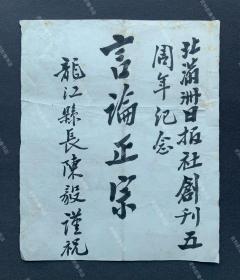 北满州日报社創刊五
周年纪念
言論正宗
龍江縣長陳毅謹祝